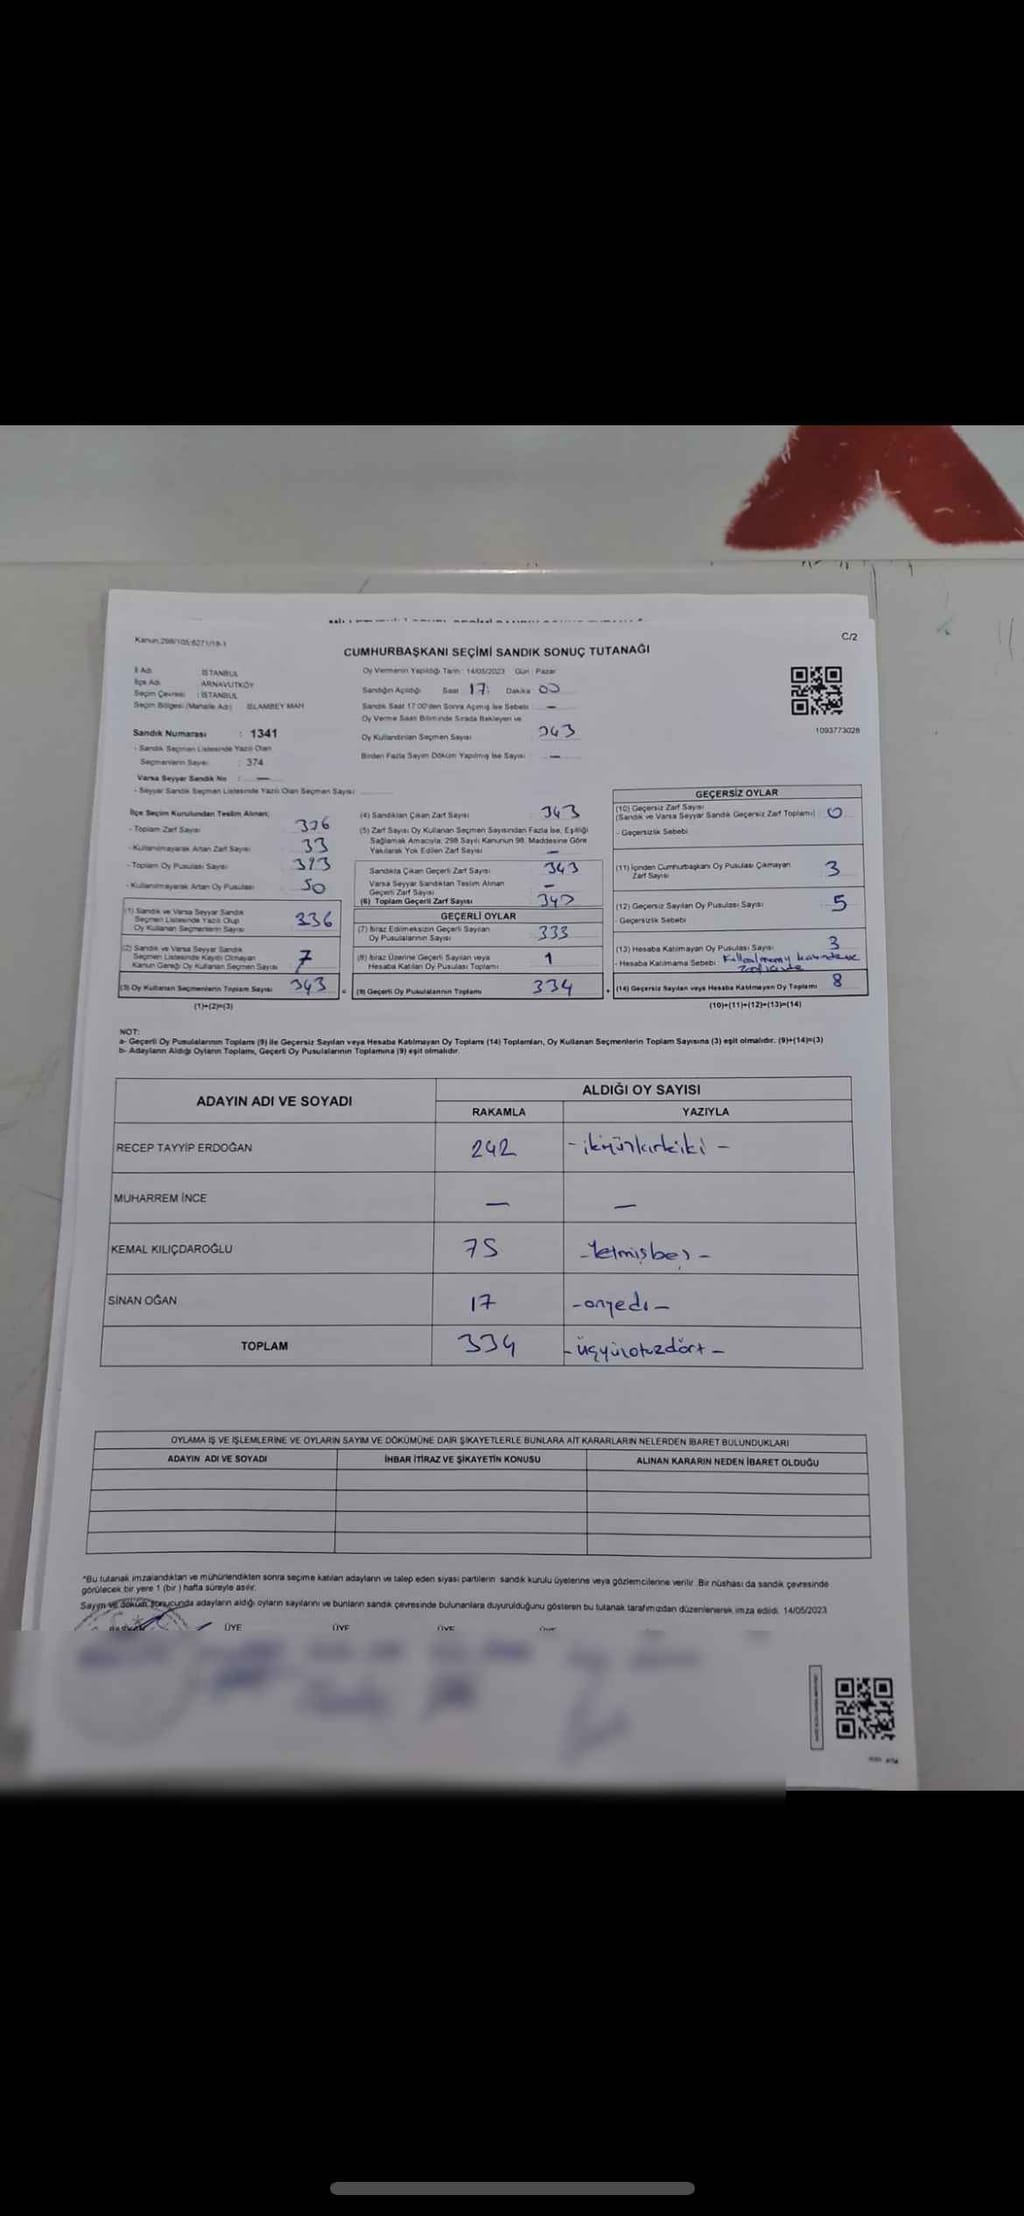 Kanun:298/105;6271/19-1
C/2
CUMHURBAŞKANI SEÇİMİ SANDIK SONUÇ TUTANAĞI
İl Adı : İSTANBUL
İlçe Adı : ARNAVUTKÖY
Seçim Çevresi : İSTANBUL
Seçim Bölgesi (Mahalle Adı) : İSLAMBEY MAH
Sandık Numarası : 1341
- Sandık Seçmen Listesinde Yazılı Olan
Seçmenlerin Sayısı : 374
Varsa Seyyar Sandık No : —
- Seyyar Sandık Seçmen Listesinde Yazılı Olan Seçmen Sayısı
Oy Vermenin Yapıldığı Tarih : 14/05/2023 Gün : Pazar
Sandığın Açıldığı Saat 17: Dakika 00
Sandık Saat 17:00'den Sonra Açılmış İse Sebebi —
Oy Verme Saati Bitiminde Sırada Bekleyen ve
Oy Kullandırılan Seçmen Sayısı 343
Birden Fazla Sayım Döküm Yapılmış İse Sayısı —
1093773028
İlçe Seçim Kurulundan Teslim Alınan;
- Toplam Zarf Sayısı 376
- Kullanılmayarak Artan Zarf Sayısı 33
- Toplam Oy Pusulası Sayısı 393
- Kullanılmayarak Artan Oy Pusulası 50
(1) Sandık ve Varsa Seyyar Sandık
Seçmen Listesinde Yazılı Olup
Oy Kullanan Seçmenlerin Sayısı 336
(2) Sandık ve Varsa Seyyar Sandık
Seçmen Listesinde Kayıtlı Olmayan
Kanun Gereği Oy Kullanan Seçmen Sayısı 7
(3) Oy Kullanan Seçmenlerin Toplam Sayısı 343
(1)+(2)=(3)
(4) Sandıktan Çıkan Zarf Sayısı 343
(5) Zarf Sayısı Oy Kullanan Seçmen Sayısından Fazla İse, Eşitliği
Sağlamak Amacıyla; 298 Sayılı Kanunun 98. Maddesine Göre
Yakılarak Yok Edilen Zarf Sayısı —
Sandıkta Çıkan Geçerli Zarf Sayısı 343
Varsa Seyyar Sandıktan Teslim Alınan
Geçerli Zarf Sayısı —
(6) Toplam Geçerli Zarf Sayısı 343
GEÇERLİ OYLAR
(7) İtiraz Edilmeksizin Geçerli Sayılan
Oy Pusulalarının Sayısı 333
(8) İtiraz Üzerine Geçerli Sayılan veya
Hesaba Katılan Oy Pusulası Toplamı 1
= (9) Geçerli Oy Pusulalarının Toplamı 334
GEÇERSİZ OYLAR
(10) Geçersiz Zarf Sayısı
(Sandık ve Varsa Seyyar Sandık Geçersiz Zarf Toplamı) 0
- Geçersizlik Sebebi
(11) İçinden Cumhurbaşkanı Oy Pusulası Çıkmayan
Zarf Sayısı 3
(12) Geçersiz Sayılan Oy Pusulası Sayısı 5
- Geçersizlik Sebebi
(13) Hesaba Katılmayan Oy Pusulası Sayısı 3
- Hesaba Katılmama Sebebi:
+ (14) Geçersiz Sayılan veya Hesaba Katılmayan Oy Toplamı 8
(10)+(11)+(12)+(13)=(14)
NOT:
a- Geçerli Oy Pusulalarının Toplamı (9) ile Geçersiz Sayılan veya Hesaba Katılmayan Oy Toplamı (14) Toplamları, Oy Kullanan Seçmenlerin Toplam Sayısına (3) eşit olmalıdır. (9)+(14)=(3)
b- Adayların Aldığı Oyların Toplamı, Geçerli Oy Pusulalarının Toplamına (9) eşit olmalıdır.
ADAYIN ADI VE SOYADI
ALDIĞI OY SAYISI
RAKAMLA YAZIYLA
RECEP TAYYİP ERDOĞAN 242 - ikiyüzkırkiki -
MUHARREM İNCE — —
KEMAL KILIÇDAROĞLU 75 - Yetmişbeş -
SİNAN OĞAN 17 - onyedi -
TOPLAM 334 - üçyüzotuzdört -
OYLAMA İŞ VE İŞLEMLERİNE VE OYLARIN SAYIM VE DÖKÜMÜNE DAİR ŞİKAYETLERLE BUNLARA AİT KARARLARIN NELERDEN İBARET BULUNDUKLARI
ADAYIN ADI VE SOYADI İHBAR İTİRAZ VE ŞİKAYETİN KONUSU ALINAN KARARIN NEDEN İBARET OLDUĞU
*Bu tutanak imzalandıktan ve mühürlendikten sonra seçime katılan adayların ve talep eden siyasi partilerin sandık kurulu üyelerine veya gözlemcilerine verilir. Bir nüshası da sandık çevresinde
görülecek bir yere 1 (bir) hafta süreyle asılır.
Sayım ve döküm sonucunda adayların aldığı oyların sayılarını ve bunların sandık çevresinde bulunanlara duyurulduğunu gösteren bu tutanak tarafımızdan düzenlenerek imza edildi. 14/05/2023
BAŞKAN ÜYE ÜYE ÜYE ÜYE